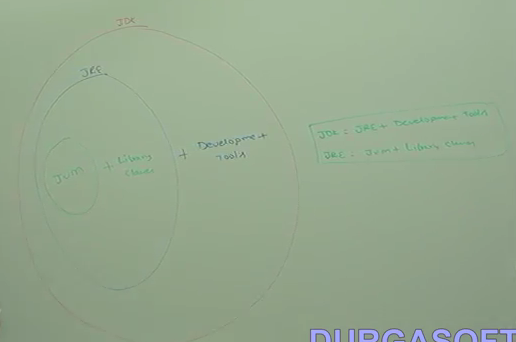 JDK
JRE
JVM + Library classes + Development Tools
JDK = JRE + Development Tools
JRE = JVM + Library classes
DURGASOFT